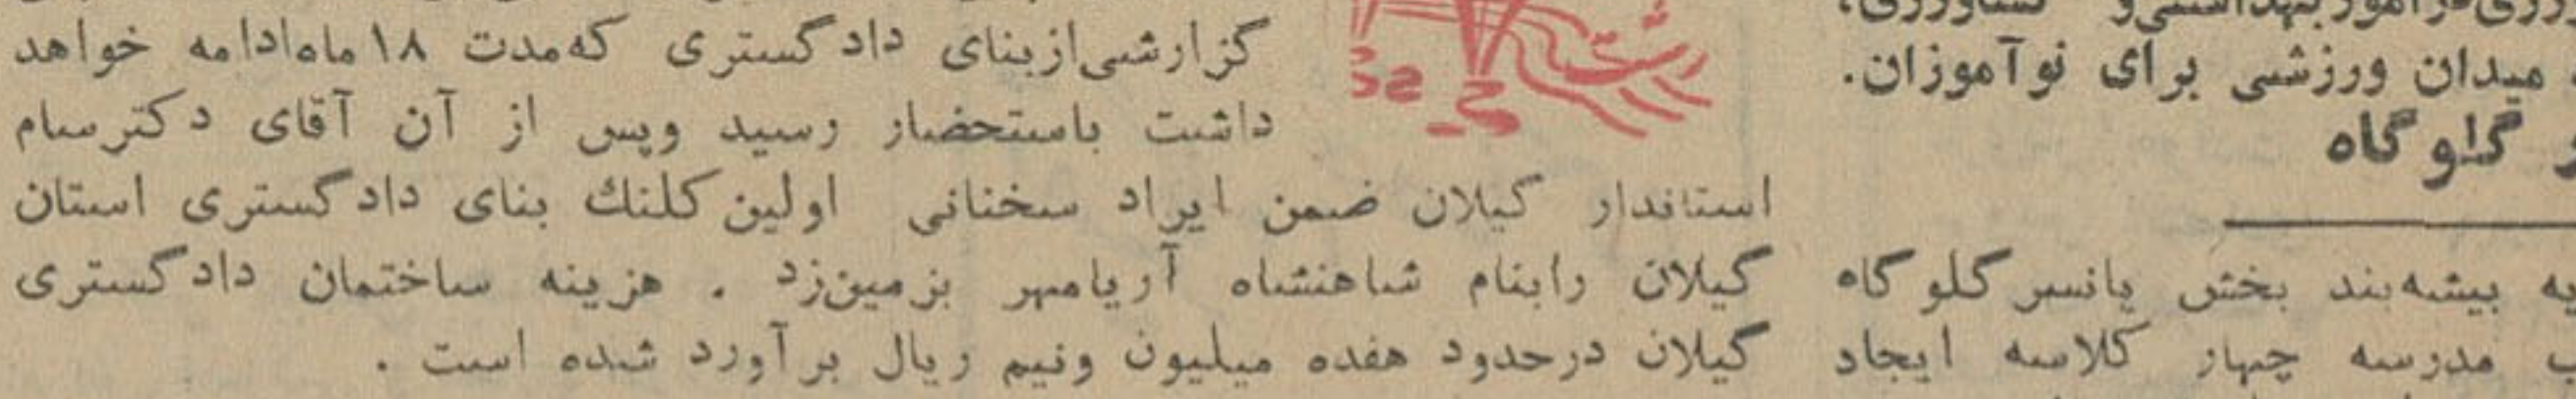 ورزی در امور بهداشتی و کشاورزی،
میدان ورزشی برای نوآموزان.
گلوگاه
یه بیشه‌بند بخش یانسر گلوگاه
مدرسه چهار کلاسه ایجاد
رشت
گزارشی از بنای دادگستری که مدت ۱۸ ماه ادامه خواهد
داشت باستحضار رسید و پس از آن آقای دکتر سام
استاندار گیلان ضمن ایراد سخنانی اولین کلنك بنای دادگستری استان
گیلان را بنام شاهنشاه آریامهر بزمین زد . هزینه ساختمان دادگستری
گیلان در حدود هفده میلیون و نیم ریال برآورد شده است .